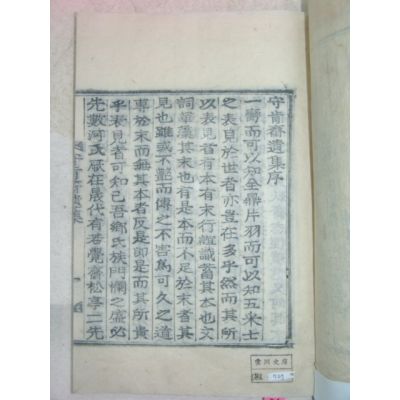 守肯齋遺集序
一臠而可以知全鼎片羽而可以知五采士
之表見於世者亦豈在多乎然而其所
以表見者有本有末行誼識蓄其本也文
詞華藻其末也有是本而不足於末者其
見也雖或不麗而傳之不害爲可久之道
專於末而無其本者反是卽是而其所貴
乎表見者可知已吾鄕氏族門欄之盛必
先數河氏厥在晟代有若覺齋松亭二先
守肯齋遺集
一